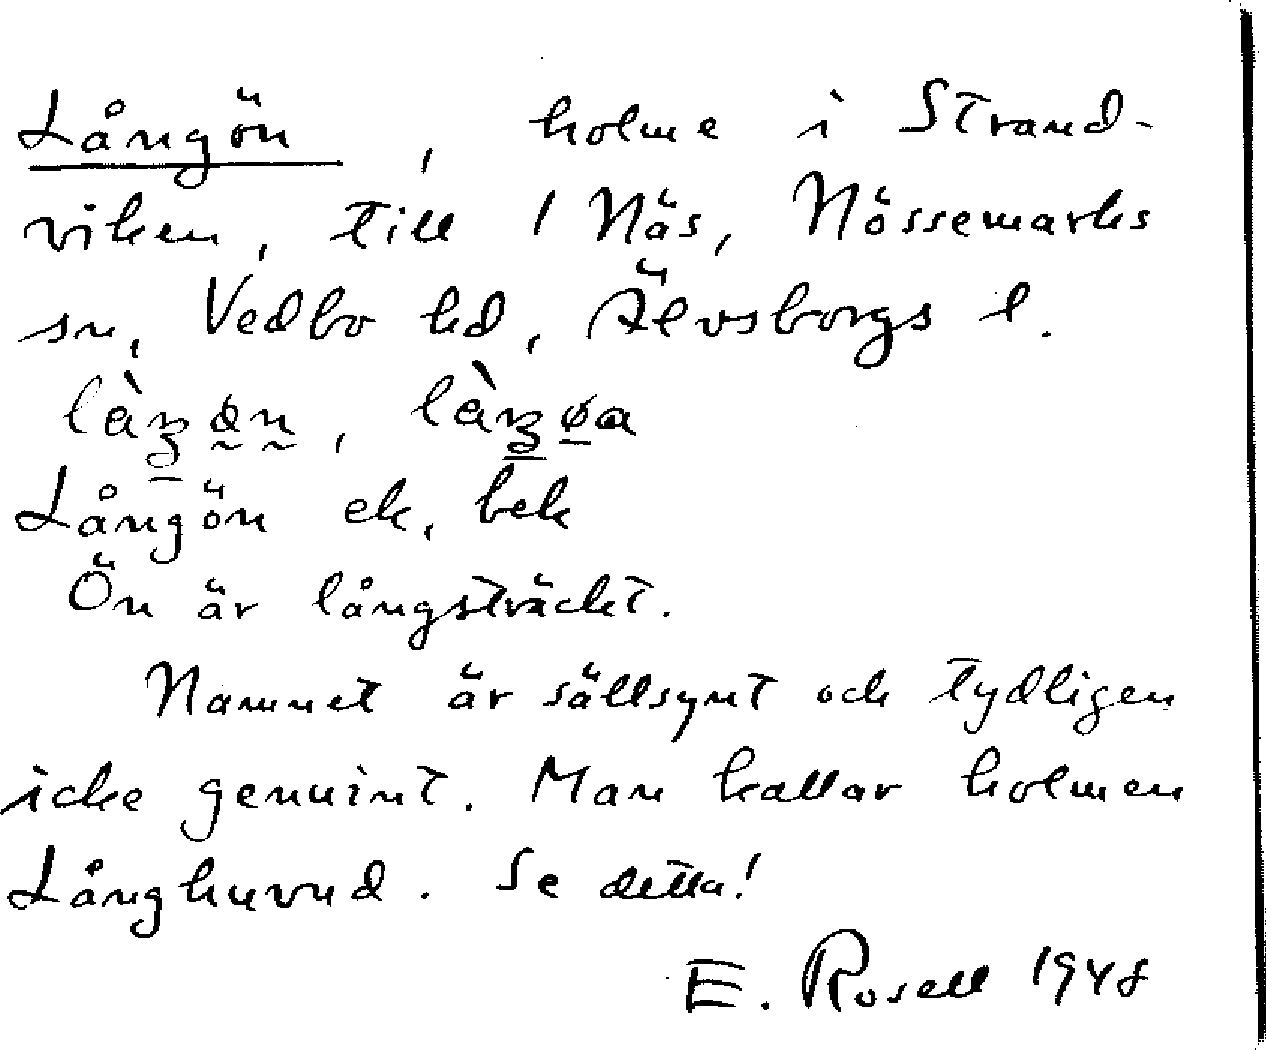 Långön, holme i Strand-
viken, till 1 Näs, Nössemarks
sn, Vedbo hd, Älvsborgs l.
Långön ek, bek
Ön är långsträckt.
Namnet är sällsynt och tydligen
icke genuint. Man kallar holmen
Långhuvud. Se detta!
E. Rosell 1948